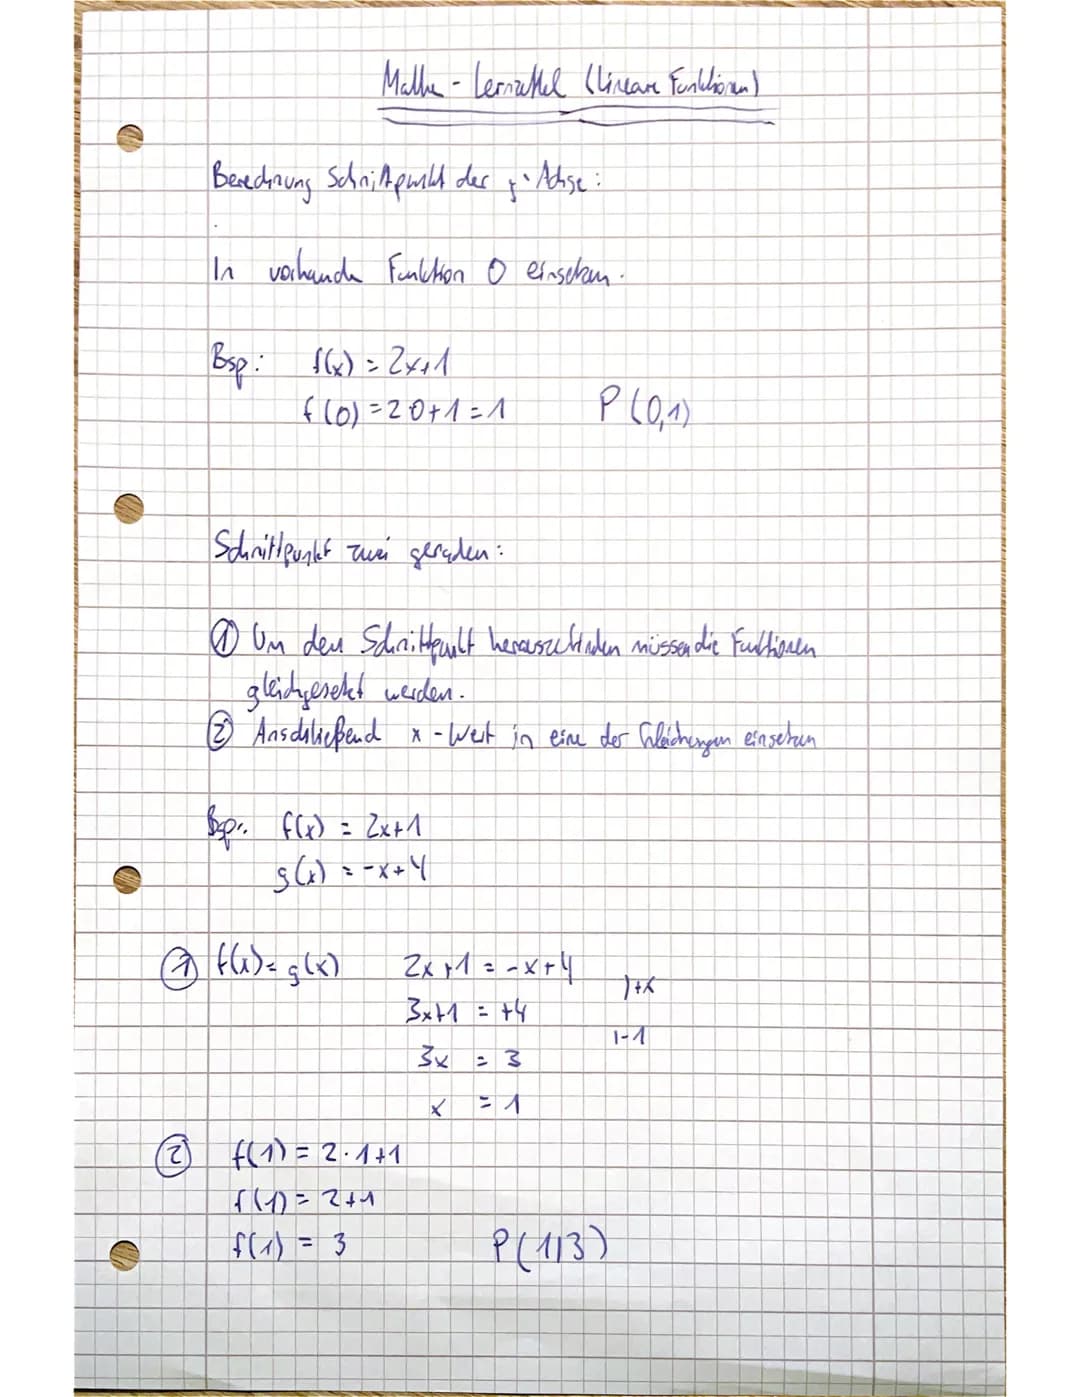 Mathe - Lernzettel (lineare Funktionen)
Berechnung Schnittpunkt der y-Achse:
In vorhande Funktion 0 einsetzen.
Bsp: f(x) = 2x+1
f(0) = 2·0+1 = 1 P(0,1)
Schnittpunkt zwei geraden:
① Um den Schnittpunkt herauszufinden müssen die Funktionen
gleichgesetzt werden.
② Anschließend x-Wert in eine der Gleichungen einsetzen
Bsp: f(x) = 2x+1
g(x) = -x+4
① f(x) = g(x) 2x+1 = -x+4 |+x
3x+1 = +4 |-1
3x = 3
x = 1
② f(1) = 2·1+1
f(1) = 2+1
f(1) = 3 P(1|3)